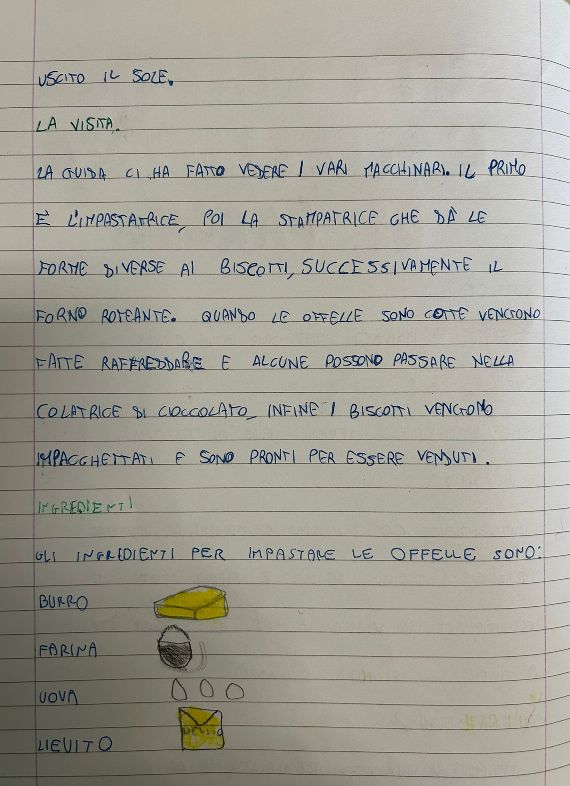 USCITO IL SOLE.
LA VISITA.
LA GUIDA CI HA FATTO VEDERE I VARI MACCHINARI. IL PRIMO
È L'IMPASTATRICE, POI LA STAMPATRICE CHE DÀ LE
FORME DIVERSE AI BISCOTTI, SUCCESSIVAMENTE IL
FORNO ROTEANTE. QUANDO LE OFFELLE SONO COTTE VENGONO
FATTE RAFFREDDARE E ALCUNE POSSONO PASSARE NELLA
COLATRICE DI CIOCCOLATO, INFINE I BISCOTTI VENGONO
IMPACCHETTATI E SONO PRONTI PER ESSERE VENDUTI.
INGREDIENTI
GLI INGREDIENTI PER IMPASTARE LE OFFELLE SONO:
BURRO
FARINA
UOVA
LIEVITO